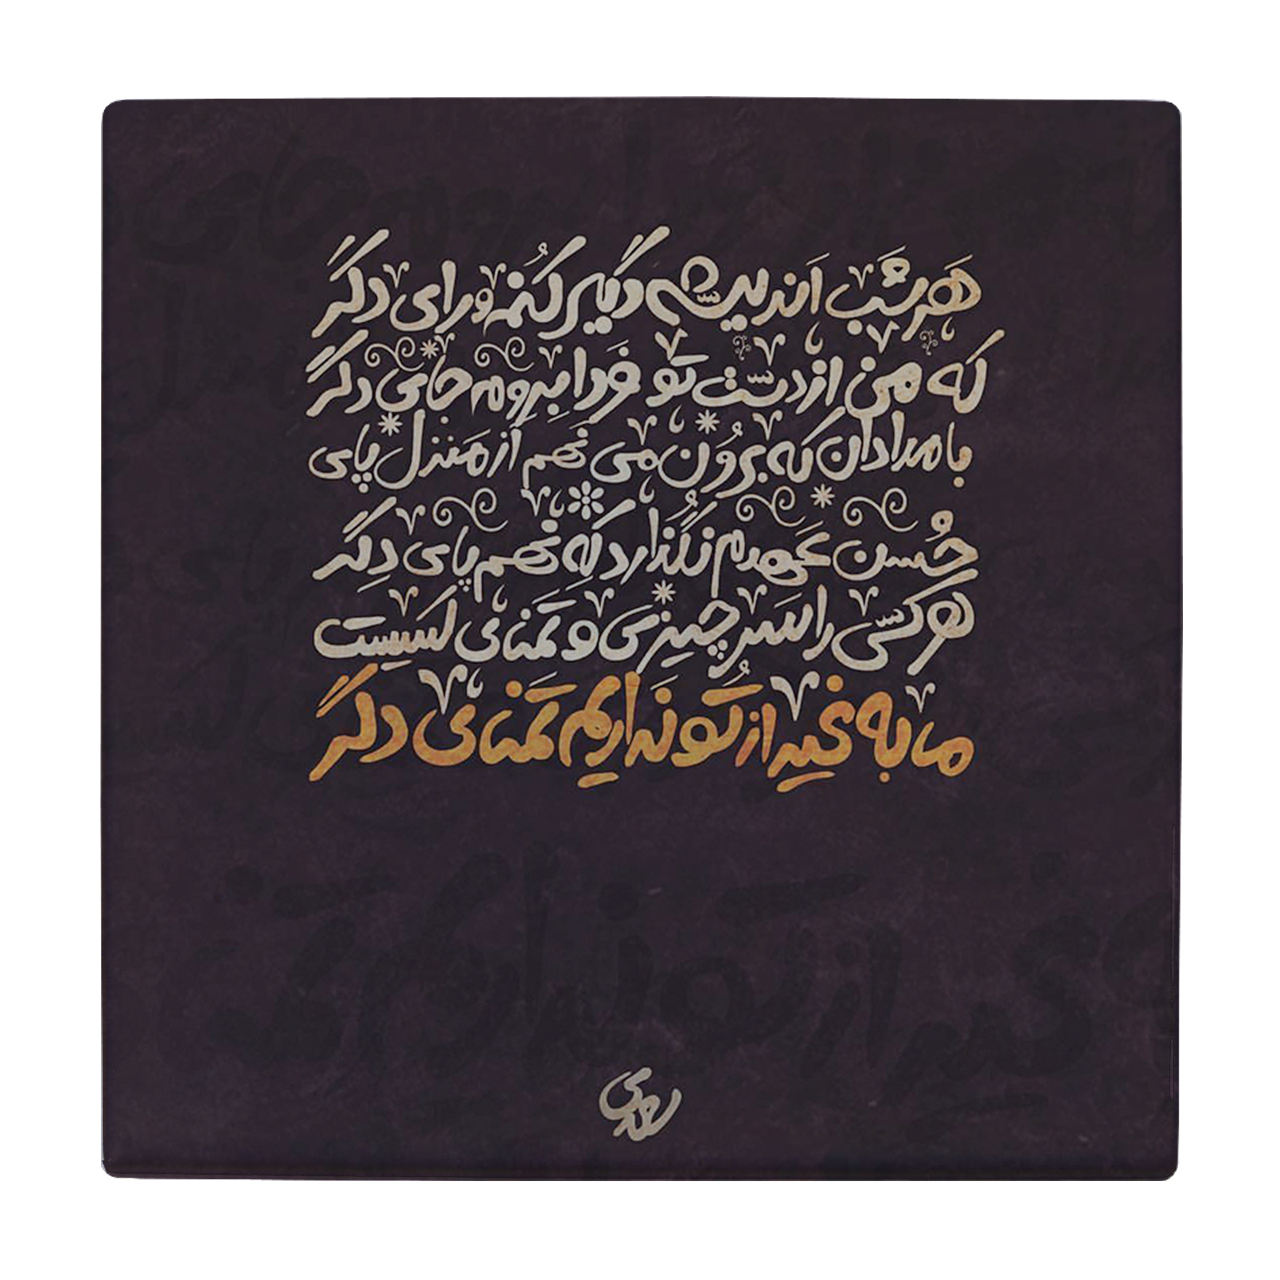 هر شب اندیشه دگیر کنم و رای دگر
که من از دست تو فردا بروم جای دگر
بامدادان که برون می نهم از منزل پای
حسن عهدم نگذارد که نهم پای دگر
هر کسی را سر چیزی و تمنای کسیست
ما به غیر از تو نداریم تمنای دگر
سعدی